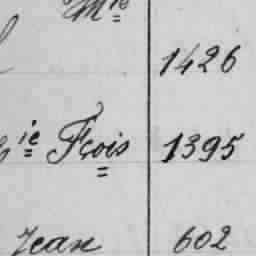 Mie
1426
ie Fçois 1395
Jean 602